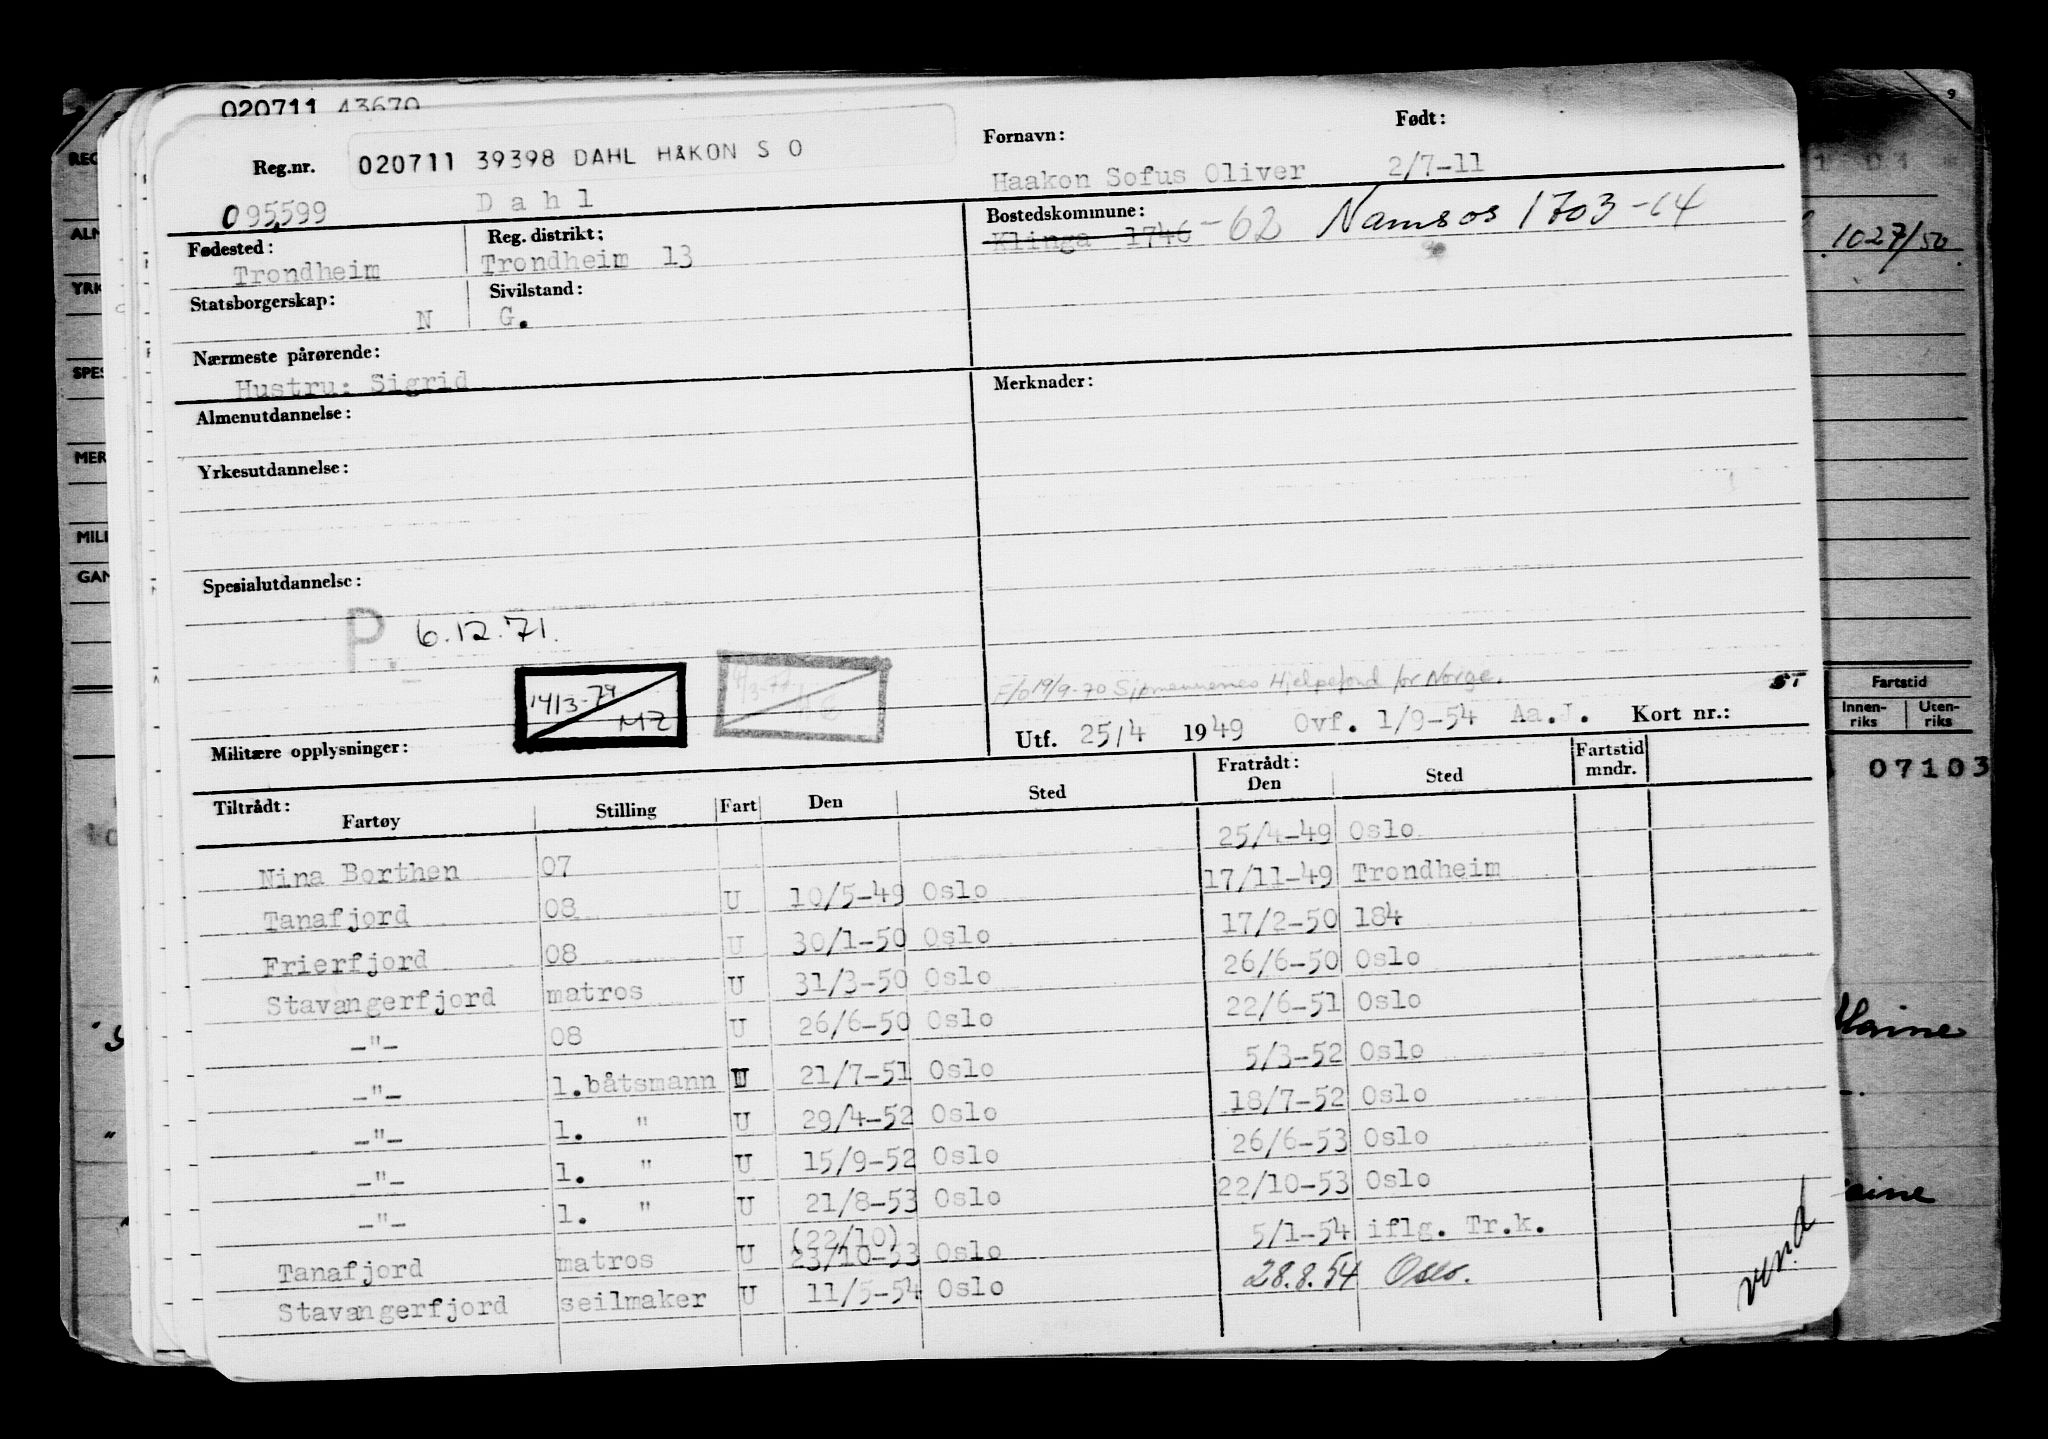 020711 43670
Reg.nr. 020711 39398 DAHL HÅKON S O Fornavn: Født:
095599 Dahl Haakon Sofus Oliver 2/7-11
Fødested: Reg. distrikt: Bostedskommune:
Trondheim Trondheim 13 Klinga 1746 -62 Namsos 1703-64
Statsborgerskap: N Sivilstand: G.
Nærmeste pårørende:
Hustru: Sigrid
Almenutdannelse: Merknader:
Yrkesutdannelse:
Spesialutdannelse:
P. 6.12.71.
14/3-79 MZ
F/o 19/9-70 Sjømennenes Hjelpefond for Norge. ST
Militære opplysninger: Utf. 25/4 1949 Ovf. 1/9-54 Aa.J. Kort nr.:
Tiltrådt: Fratrådt: Fartstid
Fartøy Stilling Fart Den Sted Den Sted mndr.
Nina Borthen 07 25/4-49 Oslo
Tanafjord 08 U 10/5-49 Oslo 17/11-49 Trondheim
Frierfjord 08 U 30/1-50 Oslo 17/2-50 184
Stavangerfjord matros U 31/3-50 Oslo 26/6-50 Oslo
-"- 08 U 26/6-50 Oslo 22/6-51 Oslo
-"- 1.båtsmann U 21/7-51 Oslo 5/3-52 Oslo
-"- 1. " U 29/4-52 Oslo 18/7-52 Oslo
-"- 1. " U 15/9-52 Oslo 26/6-53 Oslo
-"- 1. " U 21/8-53 Oslo 22/10-53 Oslo
(22/10)
Tanafjord matros U 23/10-53 Oslo 5/1-54 iflg. Tr.k.
Stavangerfjord seilmaker U 11/5-54 Oslo 28.8.54 Oslo.
vend
REG
ALM
YRK
SPES
MER
MILI
GAN
9
1027/50
Fartstid
Innen-riks Uten-riks
07103